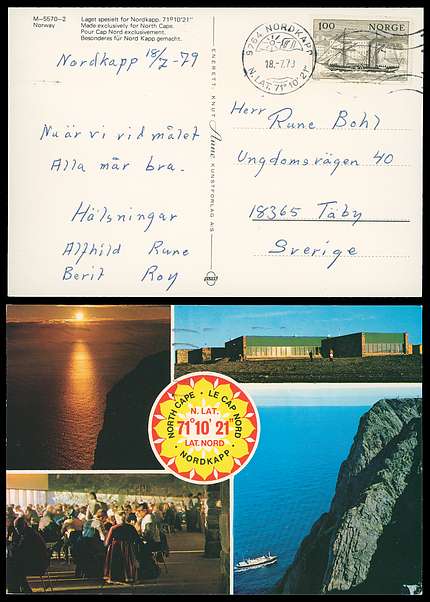 M-5570-2
Norway
Laget spesielt for Nordkapp. 71°10'21"
Made exclusively for North Cape.
Pour Cap Nord exclusivement.
Besonderes für Nord Kapp gemacht.
Nordkapp 18/7-79
Nu är vi vid målet
Alla mår bra.
Hälsningar
Alfhild Rune
Berit Roy
ENERETT: KNUT Aune KUNSTFORLAG AS
9764 NORDKAPP
18.-7.79
N. LAT. 71°10'21"
1.00 NORGE
Herr
Rune Bohl
Ungdomsvägen 40
18365 Täby
Sverige
NORTH CAPE • LE CAP NORD
N. LAT.
71°10'21"
LAT. NORD
• NORDKAPP •